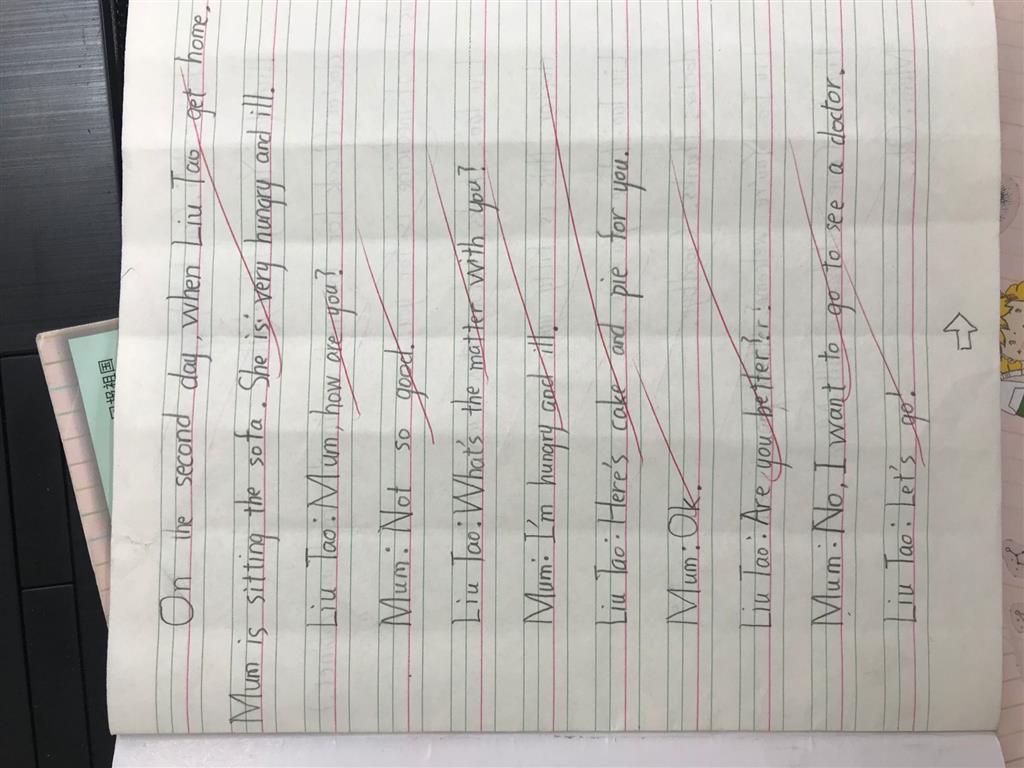 On the second day, when Liu Tao get home,
Mum is sitting the sofa. She is very hungry and ill.
Liu Tao: Mum, how are you?
Mum: Not so good.
Liu Tao: What's the matter with you?
Mum: I'm hungry and ill.
Liu Tao: Here's cake and pie for you.
Mum: Ok.
Liu Tao: Are you better?
Mum: No, I want to go to see a doctor.
Liu Tao: Let's go!
祖国